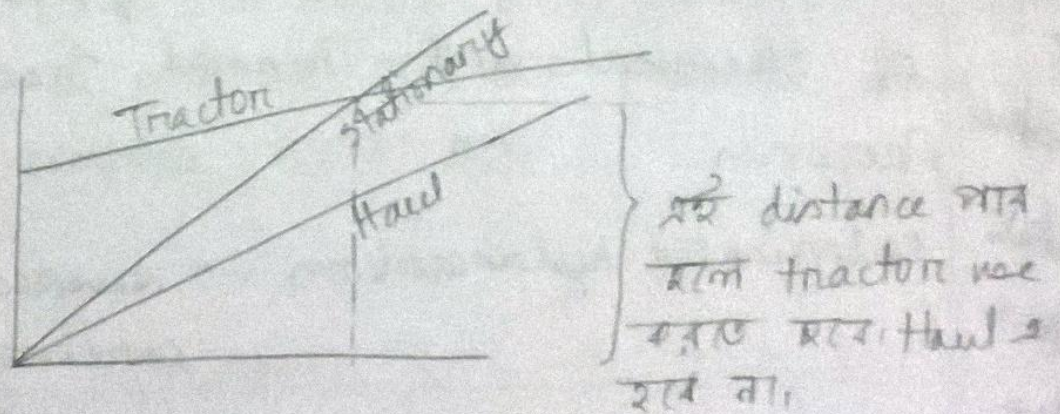 Tractor
Stationary
Haul
এই distance পার
হলে tractor use
করতে হবে। Haul এ
হবে না।